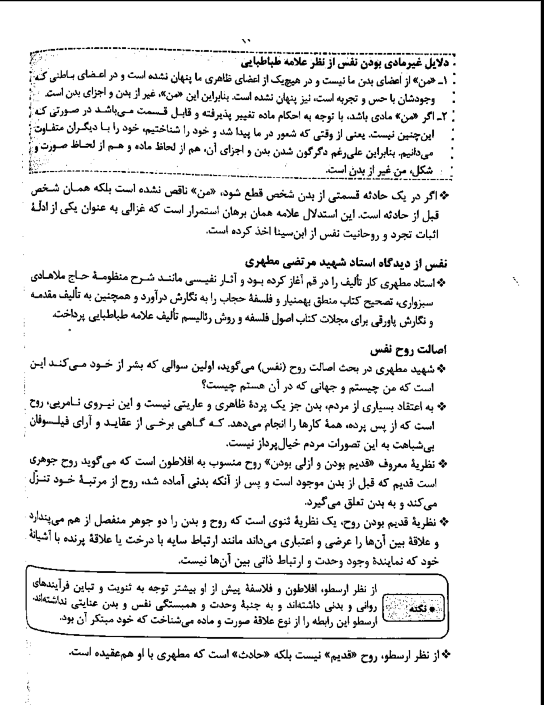 ۱۰
دلایل غیرمادی بودن نفس از نظر علامه طباطبایی
۱ـ «من» از اعضای بدن ما نیست و در هیچ‌یک از اعضای ظاهری ما پنهان نشده است و در اعضای باطنی که
وجودشان با حس و تجربه است، نیز پنهان نشده است. بنابراین این «من»، غیر از بدن و اجزای بدن است.
۲ـ اگر «من» مادی باشد، با توجه به احکام ماده تغییر پذیرفته و قابل قسمت می‌باشد در صورتی که
این‌چنین نیست. یعنی از وقتی که شعور در ما پیدا شد و خود را شناختیم، خود را با دیگران متفاوت
می‌دانیم. بنابراین علی‌رغم دگرگون شدن بدن و اجزای آن، هم از لحاظ ماده و هم از لحاظ صورت و
شکل، من غیر از بدن است.
❖ اگر در یک حادثه قسمتی از بدن شخص قطع شود، «من» ناقص نشده است بلکه همان شخص
قبل از حادثه است. این استدلال علامه همان برهان استمرار است که غزالی به عنوان یکی از ادلهٔ
اثبات تجرد و روحانیت نفس از ابن‌سینا اخذ کرده است.
نفس از دیدگاه استاد شهید مرتضی مطهری
❖ استاد مطهری کار تألیف را در قم آغاز کرده بود و آثار نفیسی مانند شرح منظومهٔ حاج ملاهادی
سبزواری، تصحیح کتاب منطق بهمنیار و فلسفهٔ حجاب را به نگارش درآورد و همچنین به تألیف مقدمه
و نگارش پاورقی برای مجلات کتاب اصول فلسفه و روش رئالیسم تألیف علامه طباطبایی پرداخت.
اصالت روح نفس
❖ شهید مطهری در بحث اصالت روح (نفس) می‌گوید، اولین سوالی که بشر از خود می‌کند این
است که من چیستم و جهانی که در آن هستم چیست؟
❖ به اعتقاد بسیاری از مردم، بدن جز یک پردهٔ ظاهری و عاریتی نیست و این نیروی نامریی، روح
است که از پس پرده، همهٔ کارها را انجام می‌دهد. که گاهی برخی از عقاید و آرای فیلسوفان
بی‌شباهت به این تصورات مردم خیال‌پرداز نیست.
❖ نظریهٔ معروف «قدیم بودن و ازلی بودن» روح منسوب به افلاطون است که می‌گوید روح جوهری
است قدیم که قبل از بدن موجود است و پس از آنکه بدنی آماده شد، روح از مرتبهٔ خود تنزّل
می‌کند و به بدن تعلق می‌گیرد.
❖ نظریهٔ قدیم بودن روح، یک نظریهٔ ثنوی است که روح و بدن را دو جوهر منفصل از هم می‌پندارد
و علاقهٔ بین آن‌ها را عرضی و اعتباری می‌داند مانند ارتباط سایه با درخت یا علاقهٔ پرنده با آشیانهٔ
خود که نمایندهٔ وجود وحدت و ارتباط ذاتی بین آن‌ها نیست.
● نکته
از نظر ارسطو، افلاطون و فلاسفهٔ پیش از او بیشتر توجه به ثنویت و تباین فرآیندهای
روانی و بدنی داشته‌اند و به جنبهٔ وحدت و همبستگی نفس و بدن عنایتی نداشته‌اند.
ارسطو این رابطه را از نوع علاقهٔ صورت و ماده می‌شناخت که خود مبتکر آن بود.
❖ از نظر ارسطو، روح «قدیم» نیست بلکه «حادث» است که مطهری با او هم‌عقیده است.